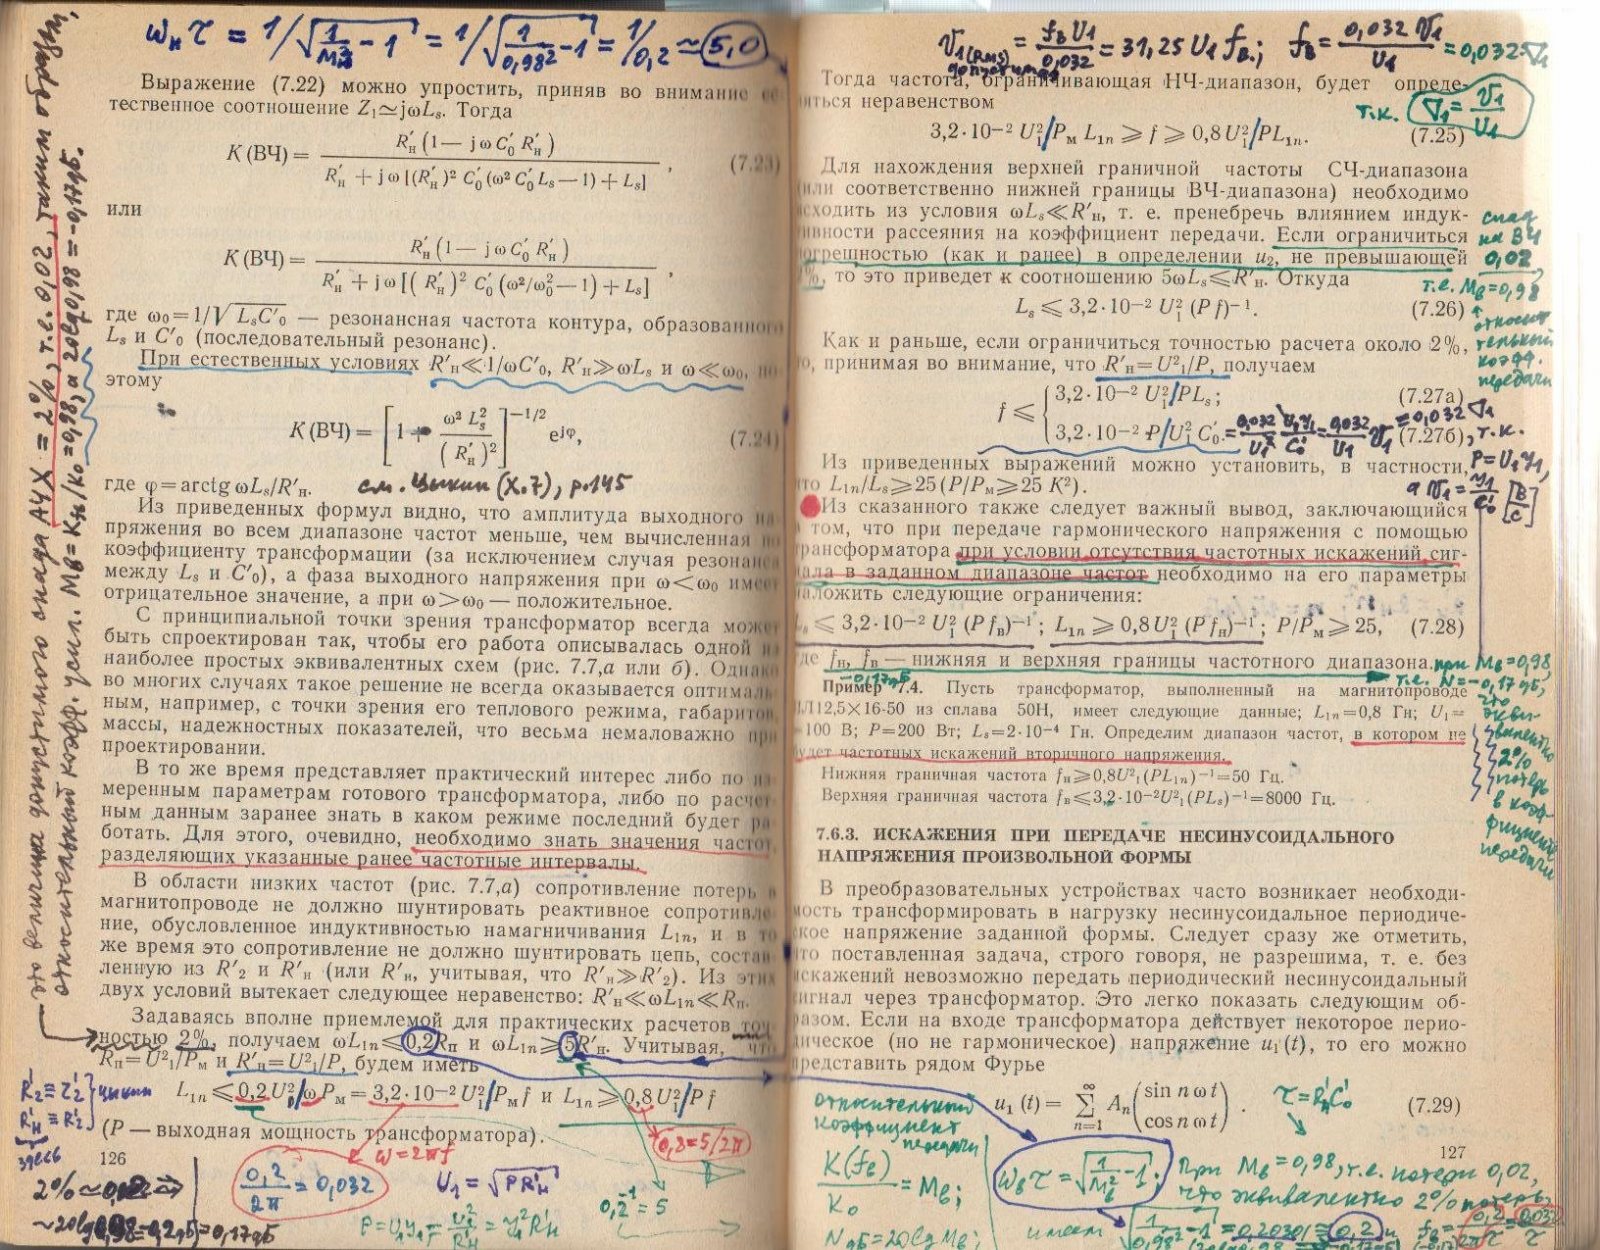 ωнτ = 1/√(1/Mн² − 1) = 1/√(1/0,98² − 1) = 1/0,2 ≃ 5,0
Выражение (7.22) можно упростить, приняв во внимание
тественное соотношение Z₁≃jωLs. Тогда
K (ВЧ) = R′н (1 — jω C′₀ R′н) / R′н + jω [(R′н)² C′₀ (ω² C′₀ Ls — 1) + Ls] , (7.23)
или
K (ВЧ) = R′н (1 — jω C′₀ R′н) / R′н + jω [(R′н)² C′₀ (ω²/ω²₀ — 1) + Ls] ,
где ω₀=1/√LsC′₀ — резонансная частота контура, образованного
Ls и C′₀ (последовательный резонанс).
При естественных условиях R′н≪1/ωC′₀, R′н≫ωLs и ω≪ω₀, по
этому
K (ВЧ) = [1 + ω² L²s / (R′н)²]^−1/2 e^jφ, (7.24)
где φ=arctg ωLs/R′н. см. Цыкин (X.7), р.145
Из приведенных формул видно, что амплитуда выходного на
пряжения во всем диапазоне частот меньше, чем вычисленная по
коэффициенту трансформации (за исключением случая резонанса
между Ls и C′₀), а фаза выходного напряжения при ω<ω₀ имеет
отрицательное значение, а при ω>ω₀ — положительное.
С принципиальной точки зрения трансформатор всегда может
быть спроектирован так, чтобы его работа описывалась одной из
наиболее простых эквивалентных схем (рис. 7.7,а или б). Однако
во многих случаях такое решение не всегда оказывается оптималь
ным, например, с точки зрения его теплового режима, габаритов,
массы, надежностных показателей, что весьма немаловажно при
проектировании.
В то же время представляет практический интерес либо по из
меренным параметрам готового трансформатора, либо по расчет
ным данным заранее знать в каком режиме последний будет ра
ботать. Для этого, очевидно, необходимо знать значения частот,
разделяющих указанные ранее частотные интервалы.
В области низких частот (рис. 7.7,а) сопротивление потерь в
магнитопроводе не должно шунтировать реактивное сопротивле
ние, обусловленное индуктивностью намагничивания L₁ₙ, и в то
же время это сопротивление не должно шунтировать цепь, состав
ленную из R′₂ и R′н (или R′н, учитывая, что R′н≫R′₂). Из этих
двух условий вытекает следующее неравенство: R′н≪ωL₁ₙ≪Rп.
Задаваясь вполне приемлемой для практических расчетов точ
ностью 2%, получаем ωL₁ₙ⩽0,2Rп и ωL₁ₙ⩾5R′н. Учитывая, что
Rп=U²₁/Pм и R′н=U²₁/P, будем иметь
L₁ₙ ⩽ 0,2 U²₁/ω Pм = 3,2·10⁻² U²₁/Pм f и L₁ₙ ⩾ 0,8 U²₁/P f
(P — выходная мощность трансформатора).
126
это величина допустимого спада АЧХ = 2%, т.е. 0,02, таким образом,
относительный коэфф. усил. Mв = Kн/K₀ = 0,98, а 20lg0,98 = −0,17дБ.
R′₂ ≡ r′₂
R′н ≡ R′₂
цыкин
здесь
ω = 2πf
0,2/2π = 0,032
U₁ = √(PR′н)
0,8 = 5/2π
0,2⁻¹ = 5
V₁(RMS) = fв U₁/0,032 = 31,25 U₁ fв.; fв = 0,032 V₁/U₁ = 0,032·∇₁
т.к. ∇₁ = V₁/U₁
Тогда частота, ограничивающая НЧ-диапазон, будет опреде-
иться неравенством
3,2·10⁻² U²₁/Pм L₁ₙ ⩾ f ⩾ 0,8 U²₁/PL₁ₙ. (7.25)
Для нахождения верхней граничной частоты СЧ-диапазона
(или соответственно нижней границы ВЧ-диапазона) необходимо
исходить из условия ωLs≪R′н, т. е. пренебречь влиянием индук-
тивности рассеяния на коэффициент передачи. Если ограничиться
погрешностью (как и ранее) в определении u₂, не превышающей
%, то это приведет к соотношению 5ωLs⩽R′н. Откуда
Ls ⩽ 3,2·10⁻² U²₁ (P f)⁻¹. (7.26)
Как и раньше, если ограничиться точностью расчета около 2%,
о, принимая во внимание, что R′н=U²₁/P, получаем
f ⩽ { 3,2·10⁻² U²₁/PLs; (7.27а)
3,2·10⁻² P/U²₁ C′₀. (7.27б)
Из приведенных выражений можно установить, в частности,
что L₁ₙ/Ls⩾25 (P/Pм⩾25 K²).
Из сказанного также следует важный вывод, заключающийся
в том, что при передаче гармонического напряжения с помощью
трансформатора при условии отсутствия частотных искажений сиг-
нала в заданном диапазоне частот необходимо на его параметры
наложить следующие ограничения:
Ls ⩽ 3,2·10⁻² U²₁ (P fв)⁻¹; L₁ₙ ⩾ 0,8 U²₁ (P fн)⁻¹; P/Pм ⩾ 25, (7.28)
где fн, fв — нижняя и верхняя границы частотного диапазона. при Mв=0,98,
т.е. N=−0,17дБ,
Пример 7.4. Пусть трансформатор, выполненный на магнитопроводе
ПЛ12,5×16-50 из сплава 50Н, имеет следующие данные; L₁ₙ=0,8 Гн; U₁=
=100 В; P=200 Вт; Ls=2·10⁻⁴ Гн. Определим диапазон частот, в котором не
будет частотных искажений вторичного напряжения.
Нижняя граничная частота fн⩾0,8U²₁(PL₁ₙ)⁻¹=50 Гц.
Верхняя граничная частота fв⩽3,2·10⁻²U²₁(PLs)⁻¹=8000 Гц.
7.6.3. ИСКАЖЕНИЯ ПРИ ПЕРЕДАЧЕ НЕСИНУСОИДАЛЬНОГО
НАПРЯЖЕНИЯ ПРОИЗВОЛЬНОЙ ФОРМЫ
В преобразовательных устройствах часто возникает необходи-
мость трансформировать в нагрузку несинусоидальное периодиче-
ское напряжение заданной формы. Следует сразу же отметить,
что поставленная задача, строго говоря, не разрешима, т. е. без
искажений невозможно передать периодический несинусоидальный
сигнал через трансформатор. Это легко показать следующим об-
разом. Если на входе трансформатора действует некоторое перио-
дическое (но не гармоническое) напряжение u₁ (t), то его можно
представить рядом Фурье
u₁ (t) = ∞ Σ n=1 Aₙ (sin n ω t / cos n ω t) . (7.29)
127
спад
на ВЧ
0,02,
т.е. Mв=0,98
относит
тельный
коэфф.
передачи
т.к.
P=U₁Y₁,
что
экви-
валентно
2%
потерь
в коэф-
фициенте
передачи
относительный
коэффициент
передачи
K(fв)/K₀ = Mв;
NдБ = 20lg Mв;
τ = R′нC′₀
ωвτ = √(1/Mв² − 1);
При Mв=0,98, т.е. потери 0,02,
что эквивалентно 2% потерь,
имеем